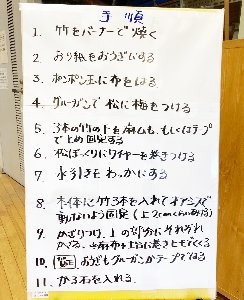 手順
1. 竹をバーナーで焼く
2. おり紙をおうぎにする
3. ポンポン玉に布をはる
4. グルーガンで松に梅をつける
5. 3本の竹の下を麻ひも、もしくはテープ
で止め固定する
6. 松ぼっくりにワイヤーを巻きつける
7. 水引きをわっかにする
8. 本体に竹3本を入れてオアシスで
動かないよう固定
9. かざりつけ、上の部分にそれぞれ
かざる。
10. おうぎもグルーガンかテープではる
11. かる石を入れる